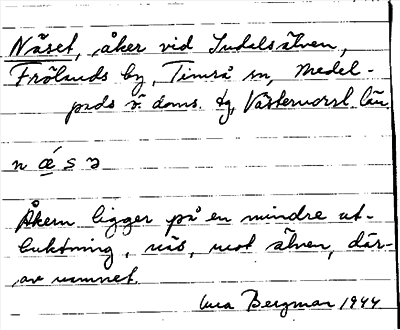 Näset, åker vid Indalsälven,
Frölands by, Timrå sn, Medel-
pads v. doms. tg, Västernorrl. län.
n ǽ s ə
Åkern ligger på en mindre ut-
buktning, näs, mot älven, där-
av namnet.
Bergman 1944